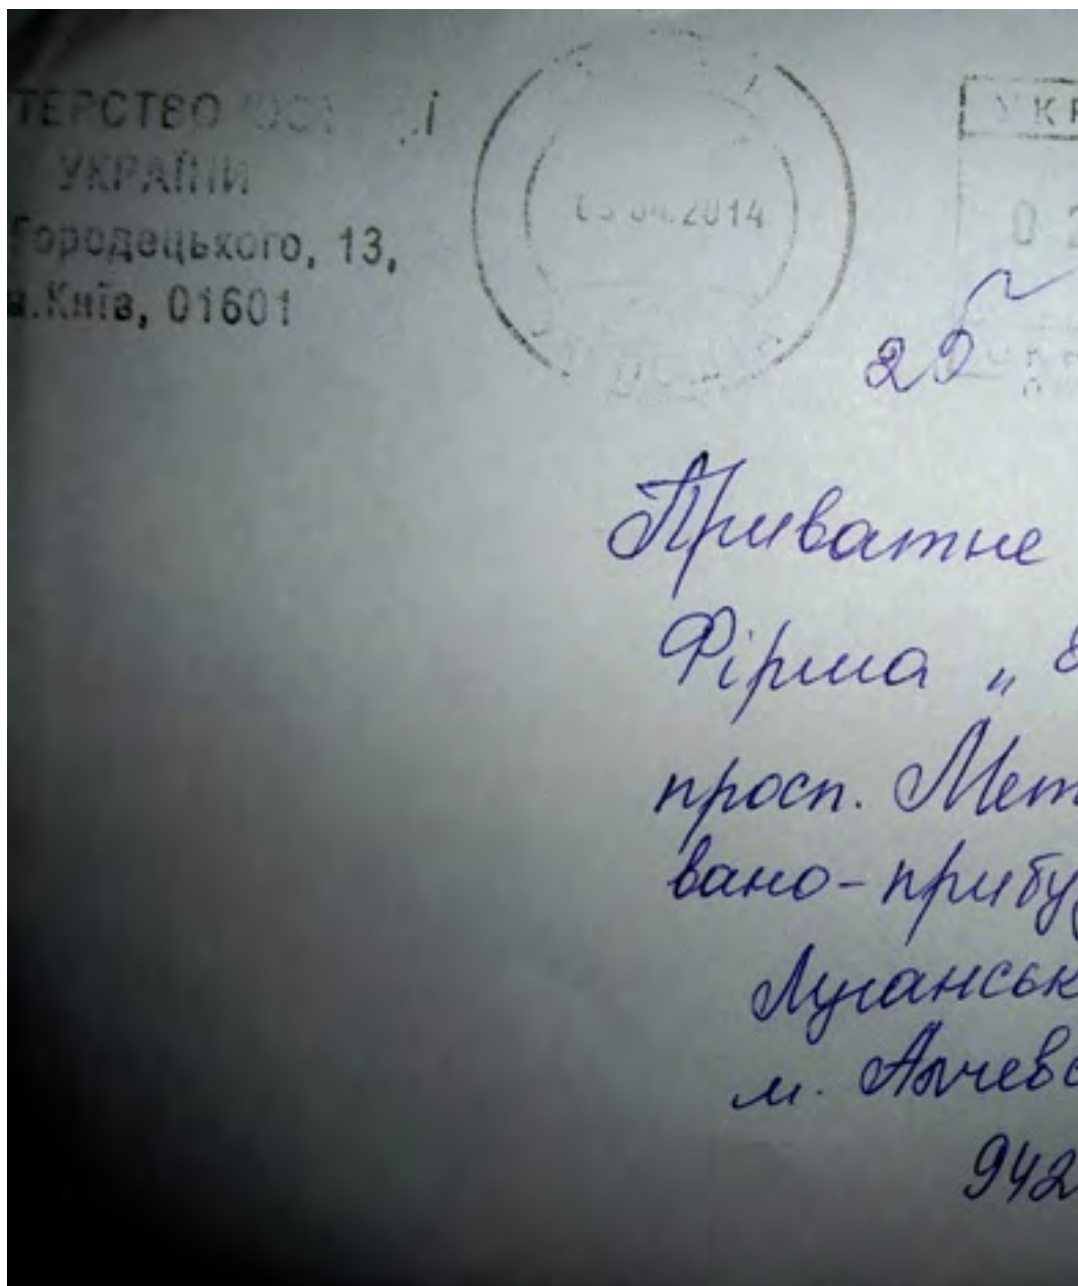 ТЕРСТВО
УКРАЇНИ
Городецького, 13,
м.Київ, 01601
04.2014
УКР
0 2
22
Приватне
Фірма „
просп. Мет
вано-прибу
Луганськ
м. Алчевс
942